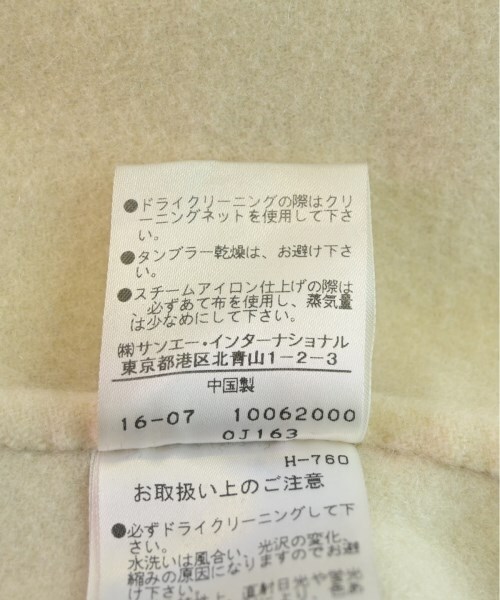 ●ドライクリーニングの際はクリ
ーニングネットを使用して下さ
い。
●タンブラー乾燥は、お避け下さ
い。
●スチームアイロン仕上げの際は
必ずあて布を使用し、蒸気量
は少なめにして下さい。
㈱サンエー・インターナショナル
東京都港区北青山1-2-3
中国製
16-07 10062000
0J163
H-760
お取扱い上のご注意
●必ずドライクリーニングして下
さい。
水洗いは風合い、光沢の変化、
縮みの原因になりますのでお避
け下さい。
直射日光や蛍光